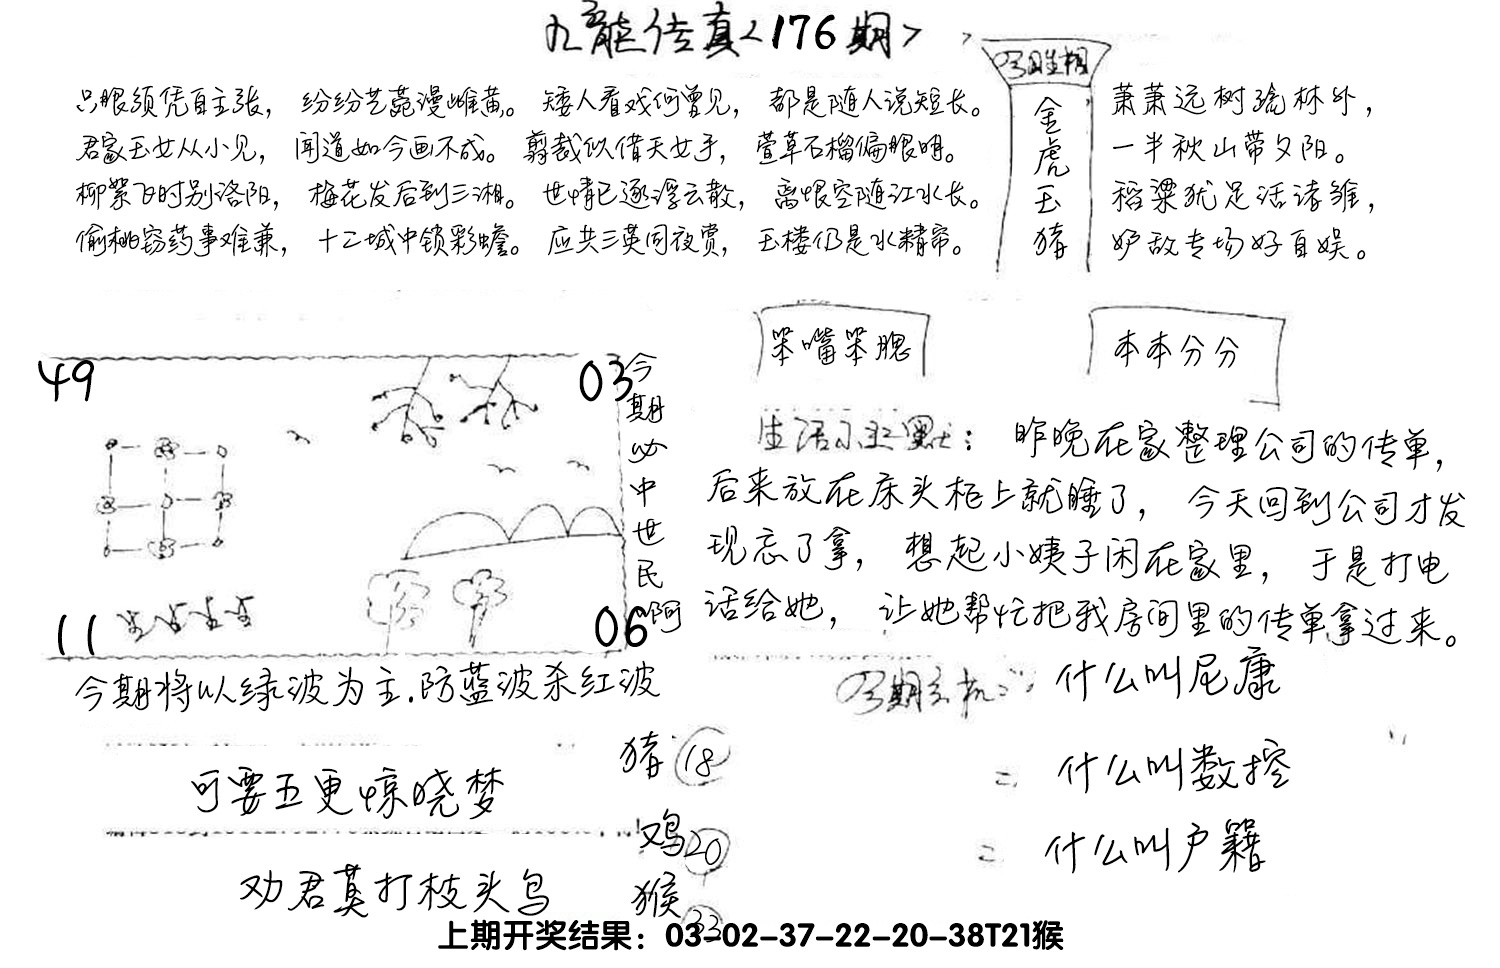 九龙传真<176期>
只眼须凭自主张， 纷纷艺苑漫雌黄。 矮人看戏何曾见， 都是随人说短长。
君家玉女从小见， 闻道如今画不成。 剪裁似借天女手， 萱草石榴偏眼明。
柳絮飞时别洛阳， 梅花发后到三湘。 世情已逐浮云散， 离恨空随江水长。
偷桃窃药事难兼， 十二城中锁彩蟾。 应共三英同夜赏， 玉楼仍是水精帘。
今期生相
金虎玉猪
萧萧远树疏林外，
一半秋山带夕阳。
稻粱犹足活诸雏，
妒敌专场好自娱。
笨嘴笨腮
本本分分
49
03
11
06
今期必中世民啊
生活小幽默：昨晚在家整理公司的传单，
后来放在床头柜上就睡了， 今天回到公司才发
现忘了拿， 想起小姨子闲在家里， 于是打电
话给她， 让她帮忙把我房间里的传单拿过来。
今期将以绿波为主.防蓝波杀红波
今期玄机 什么叫尼康
= 什么叫数控
= 什么叫户籍
可要五更惊晓梦
劝君莫打枝头鸟
猪 18
鸡 20
猴 33
上期开奖结果：03-02-37-22-20-38T21猴